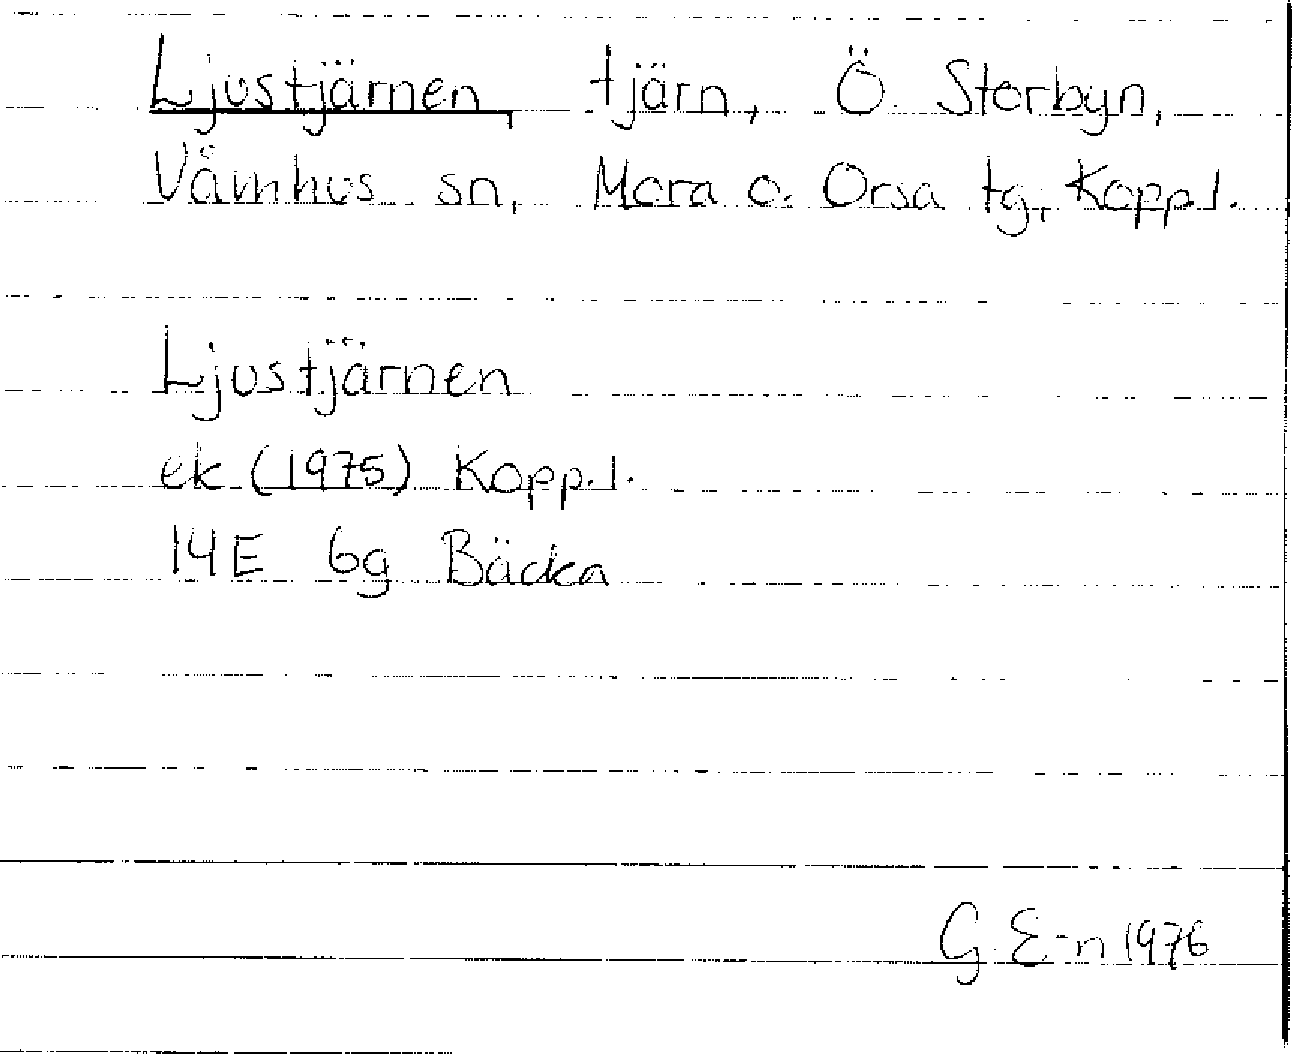 Ljustjärnen, tjärn, Ö. Storbyn,
Våmhus sn, Mora o. Orsa tg, Kopp.l.
Ljustjärnen
ek (1975) Kopp.l.
14E 6g Bäcka
G. E-n 1976